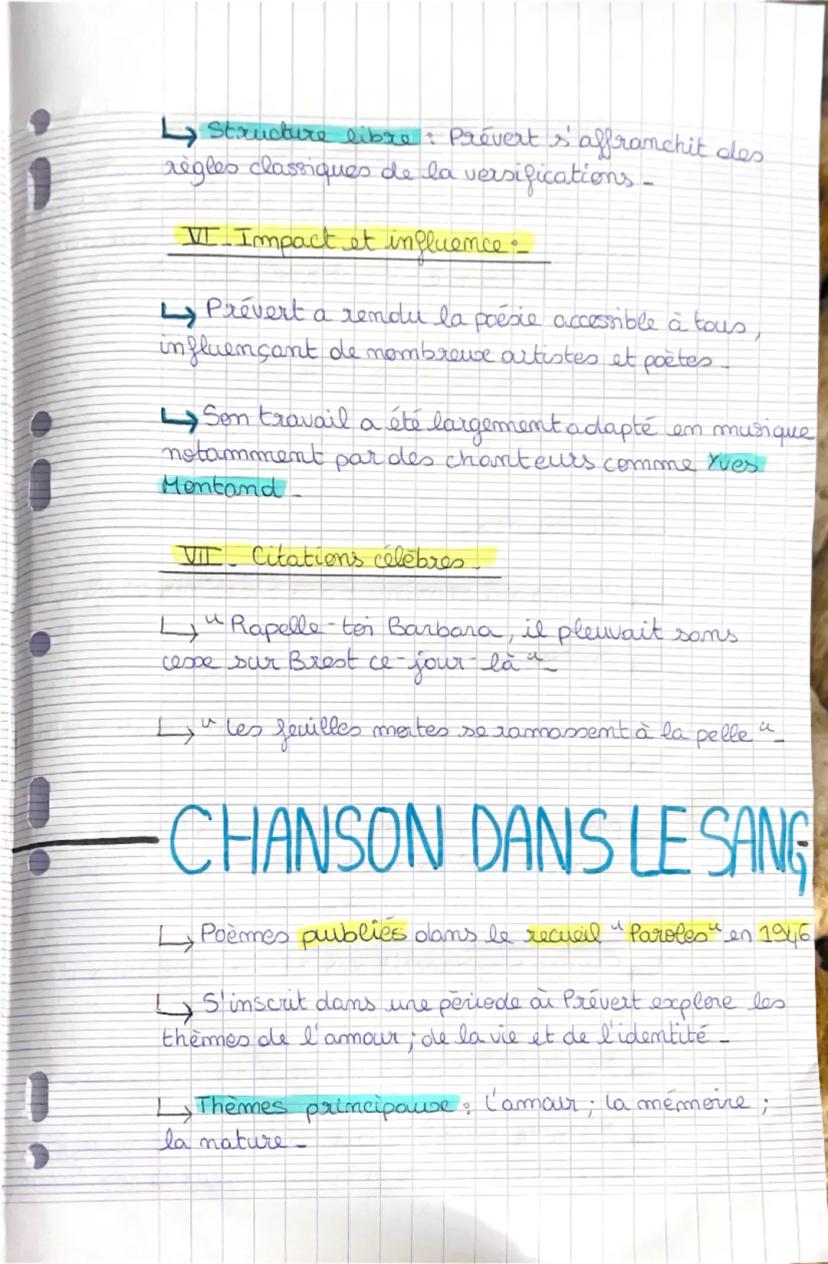 ↳ Structure libre : Prévert s'affranchit des
règles classiques de la versifications -
VI - Impact et influence :
↳ Prévert a rendu la poésie accessible à tous,
influençant de nombreux artistes et poètes -
↳ Son travail a été largement adapté en musique
notamment par des chanteurs comme Yves
Montand -
VII - Citations célèbres -
↳ "Rapelle-toi Barbara, il pleuvait sans
cesse sur Brest ce-jour-là" -
↳ "Les feuilles mortes se ramassent à la pelle" -
CHANSON DANS LE SANG
↳ Poèmes puubliés dans le recueil "Paroles" en 1946
↳ S'inscrit dans une période où Prévert explore les
thèmes de l'amour ; de la vie et de l'identité -
↳ Thèmes principaux : L'amour ; la mémoire ;
la nature -